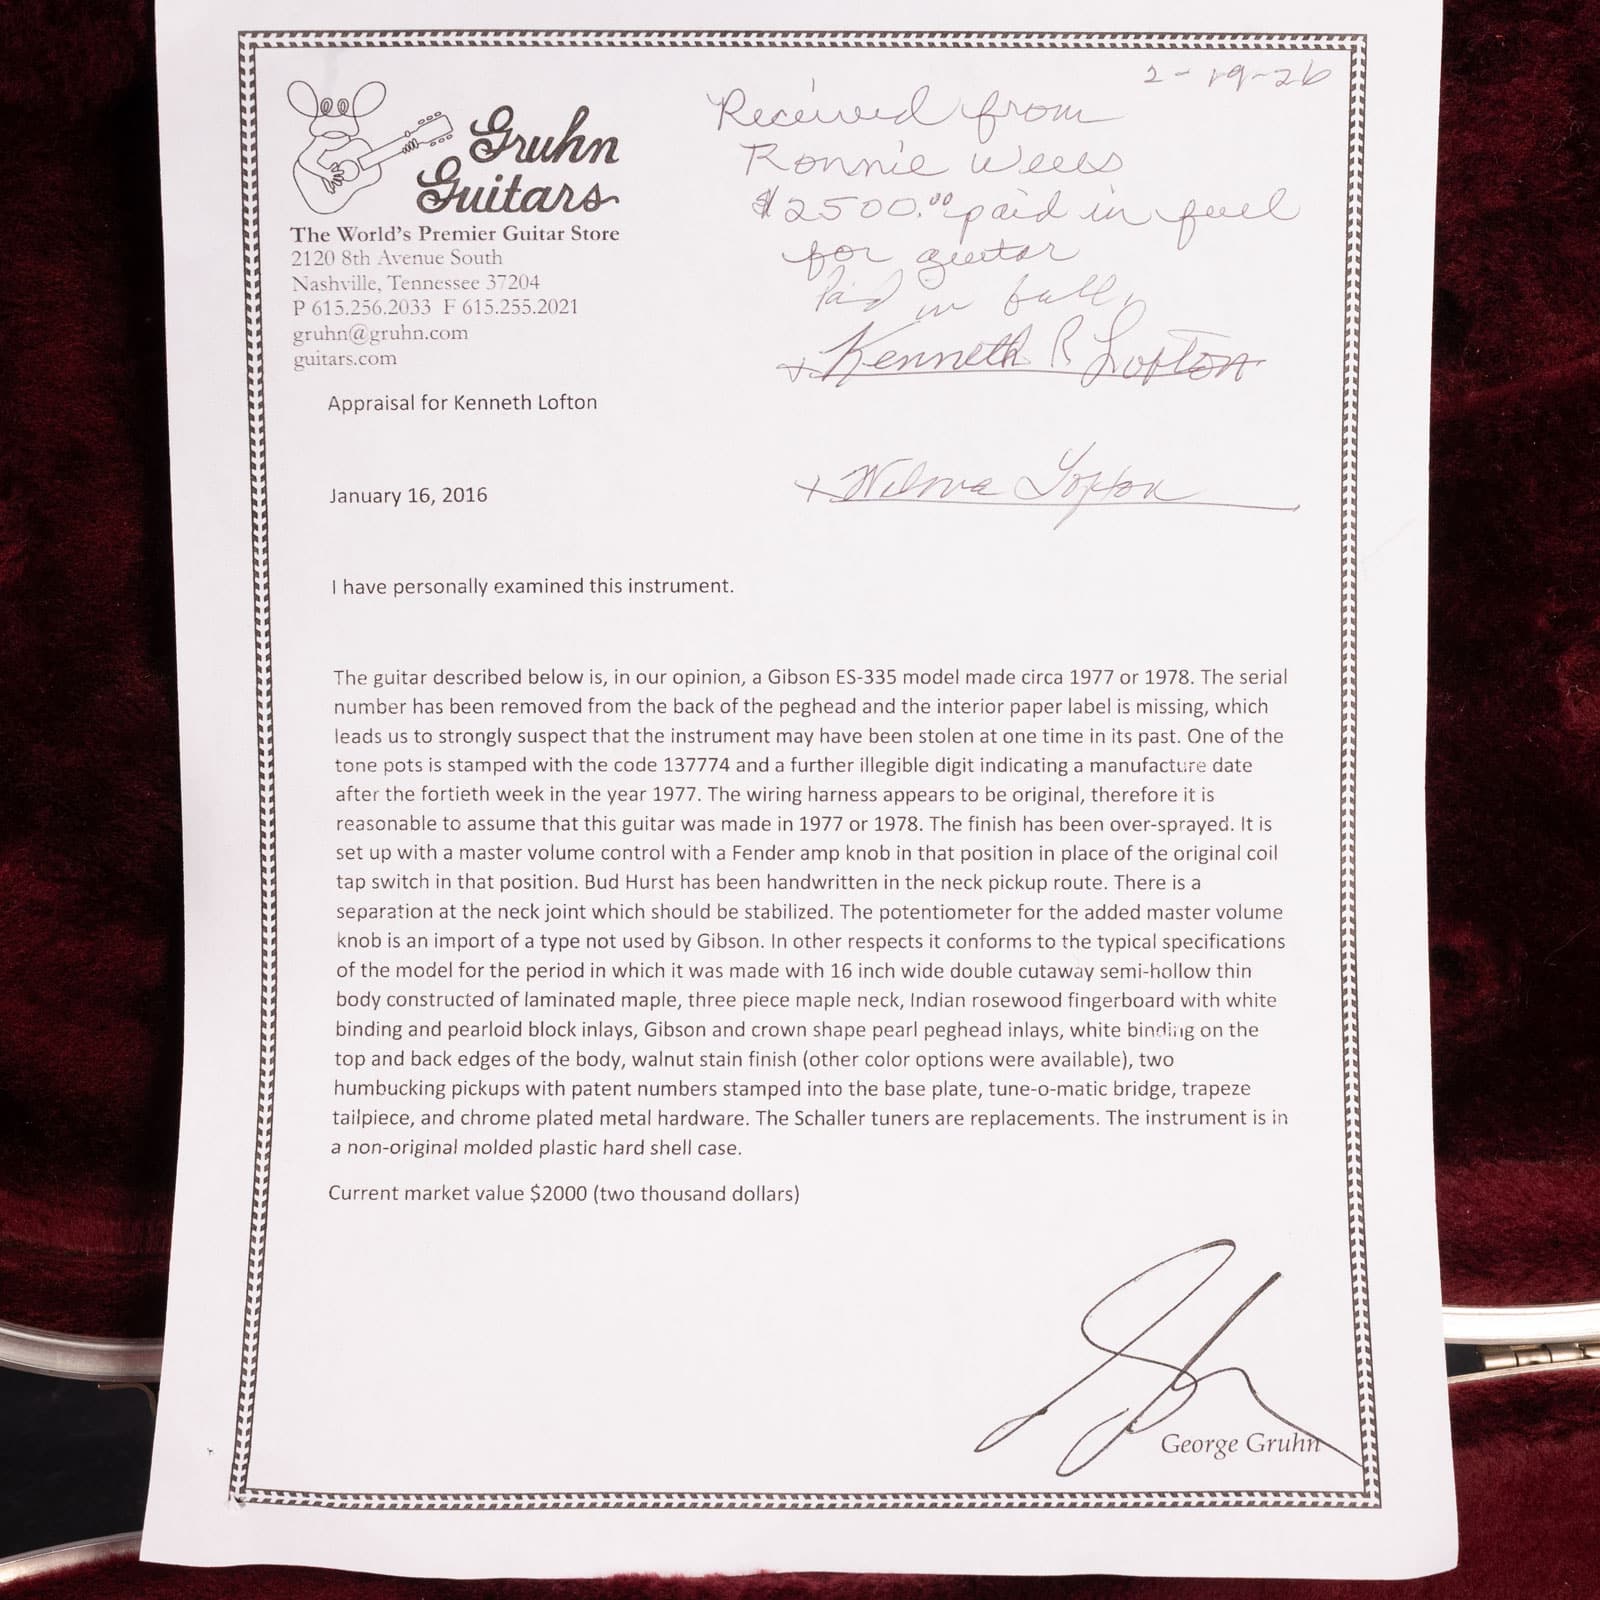 2-19-26
Received from
Ronnie Wells
$2500.00 paid in full
for guitar
Paid in full,
x Kenneth R Lofton
x Wilma Lofton
Gruhn
Guitars
The World's Premier Guitar Store
2120 8th Avenue South
Nashville, Tennessee 37204
P 615.256.2033 F 615.255.2021
gruhn@gruhn.com
guitars.com
Appraisal for Kenneth Lofton
January 16, 2016
I have personally examined this instrument.
The guitar described below is, in our opinion, a Gibson ES-335 model made circa 1977 or 1978. The serial
number has been removed from the back of the peghead and the interior paper label is missing, which
leads us to strongly suspect that the instrument may have been stolen at one time in its past. One of the
tone pots is stamped with the code 137774 and a further illegible digit indicating a manufacture date
after the fortieth week in the year 1977. The wiring harness appears to be original, therefore it is
reasonable to assume that this guitar was made in 1977 or 1978. The finish has been over-sprayed. It is
set up with a master volume control with a Fender amp knob in that position in place of the original coil
tap switch in that position. Bud Hurst has been handwritten in the neck pickup route. There is a
separation at the neck joint which should be stabilized. The potentiometer for the added master volume
knob is an import of a type not used by Gibson. In other respects it conforms to the typical specifications
of the model for the period in which it was made with 16 inch wide double cutaway semi-hollow thin
body constructed of laminated maple, three piece maple neck, Indian rosewood fingerboard with white
binding and pearloid block inlays, Gibson and crown shape pearl peghead inlays, white binding on the
top and back edges of the body, walnut stain finish (other color options were available), two
humbucking pickups with patent numbers stamped into the base plate, tune-o-matic bridge, trapeze
tailpiece, and chrome plated metal hardware. The Schaller tuners are replacements. The instrument is in
a non-original molded plastic hard shell case.
Current market value $2000 (two thousand dollars)
George Gruhn